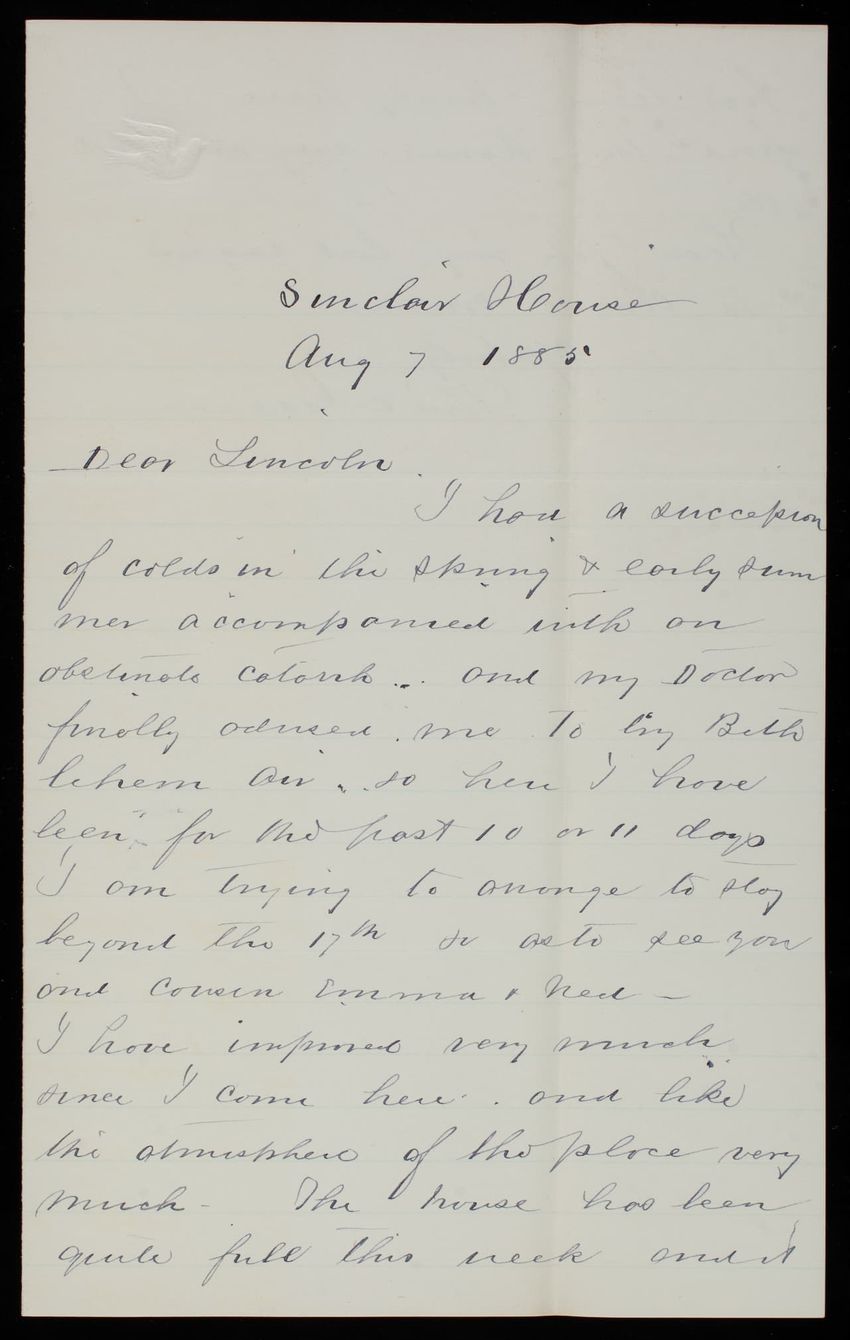 Sinclair House
Aug 7 1885
Dear Lincoln.
I had a succession
of colds in the spring & early sum
mer accompanied with an
obstinate catarrh.. and my Doctor
finally advised me to try Beth
lehem air.. so here I have
been for the past 10 or 11 days
I am trying to arrange to stay
beyond the 17th so as to see you
and cousin Emma & Ned -
I have improved very much
since I came here. and like
the atmosphere of the place very
much - The house has been
quite full this week and it